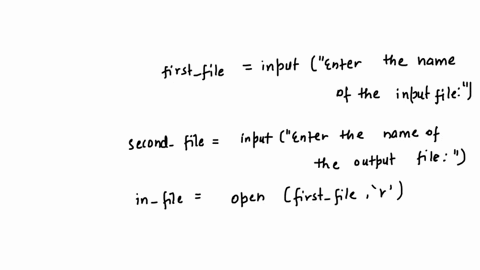 first_file = input ("Enter the name
of the input file:")
second_file = input ("Enter the name of
the output file:")
in_file = open (first_file,`r')